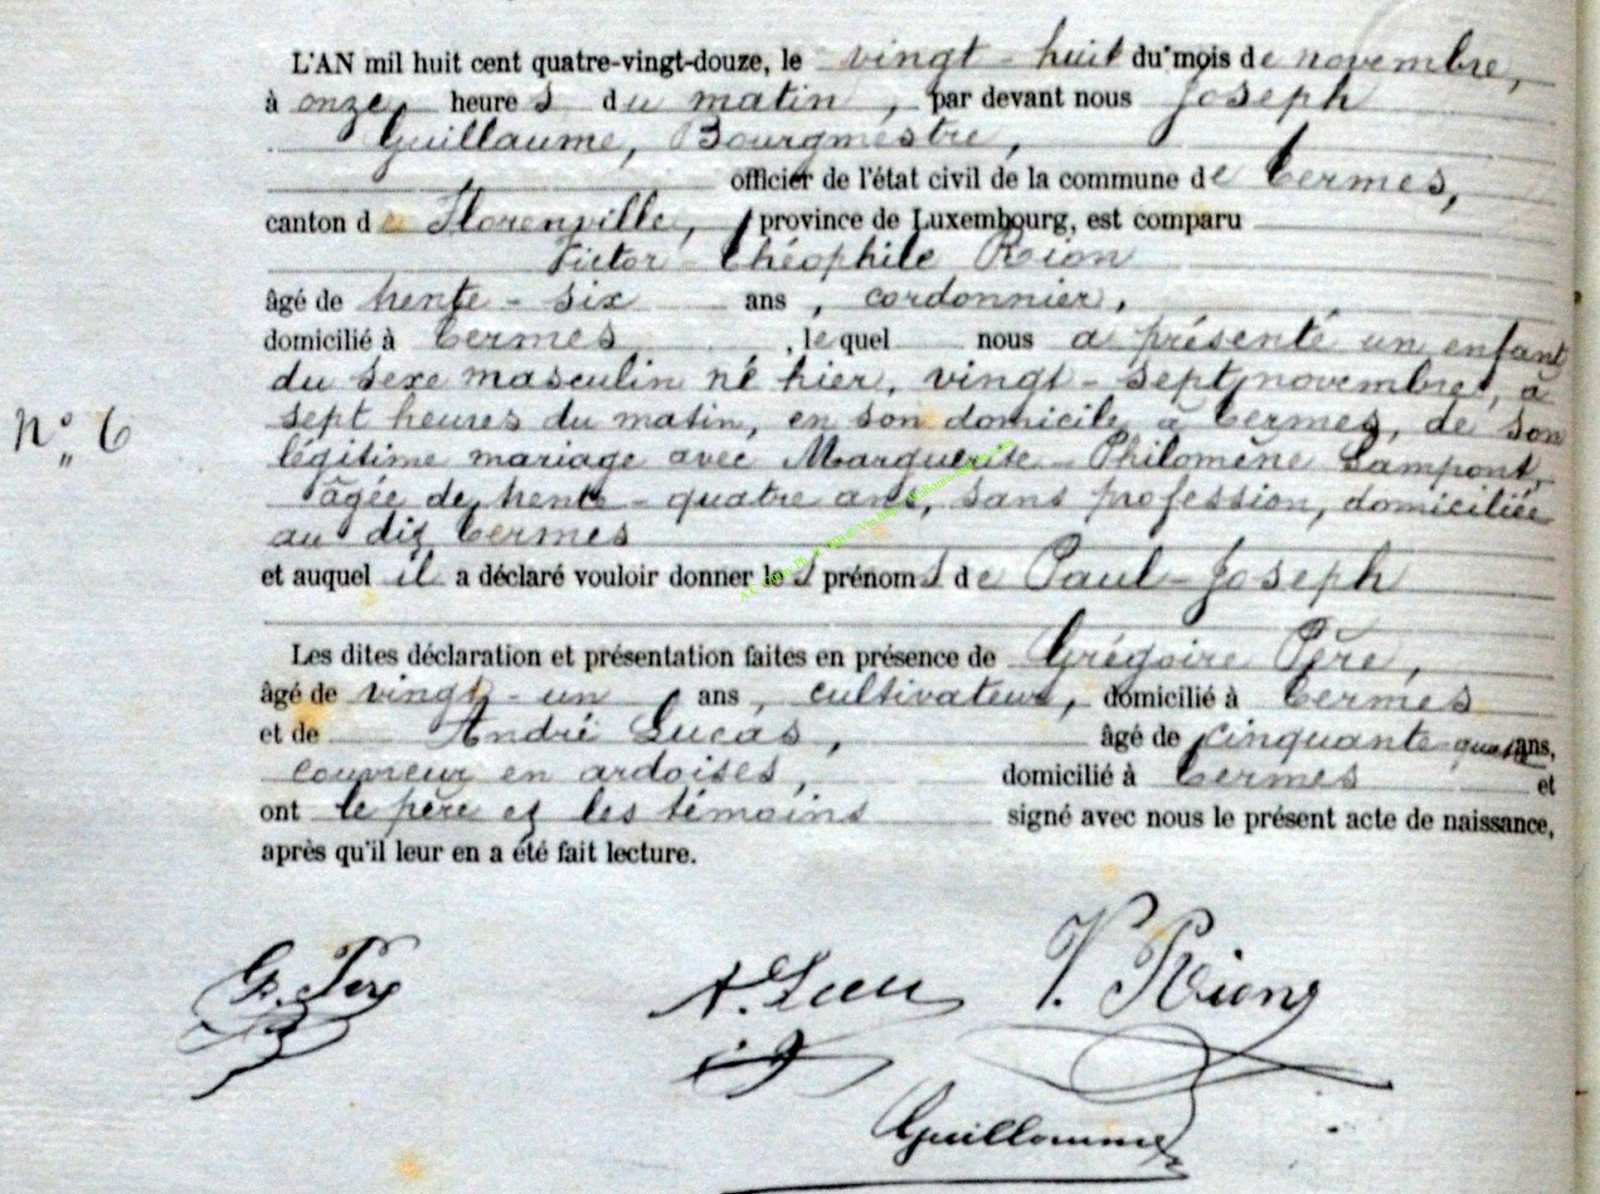 L'AN mil huit cent quatre-vingt-douze, le vingt-huit du mois de novembre,
à onze heures du matin, par devant nous Joseph
Guillaume, Bourgmestre,
officier de l'état civil de la commune de Termes,
canton de Florenville, province de Luxembourg, est comparu
Victor-Théophile Rion
âgé de trente-six ans, cordonnier,
domicilié à Termes, lequel nous a présenté un enfant
N° 6
du sexe masculin né hier, vingt-sept novembre, à
sept heures du matin, en son domicile à Termes, de son
légitime mariage avec Marguerite-Philomène Lampont,
âgée de trente-quatre ans, sans profession, domiciliée
au dit Termes
et auquel il a déclaré vouloir donner les prénoms de Paul-Joseph
Les dites déclaration et présentation faites en présence de Grégoire Père,
âgé de vingt-un ans, cultivateur, domicilié à Termes
et de André Lucas, âgé de cinquante-quatre ans,
couvreur en ardoises, domicilié à Termes et
ont le père et les témoins signé avec nous le présent acte de naissance,
après qu'il leur en a été fait lecture.
G. Père A. Lucas V. Rion
Guillaume